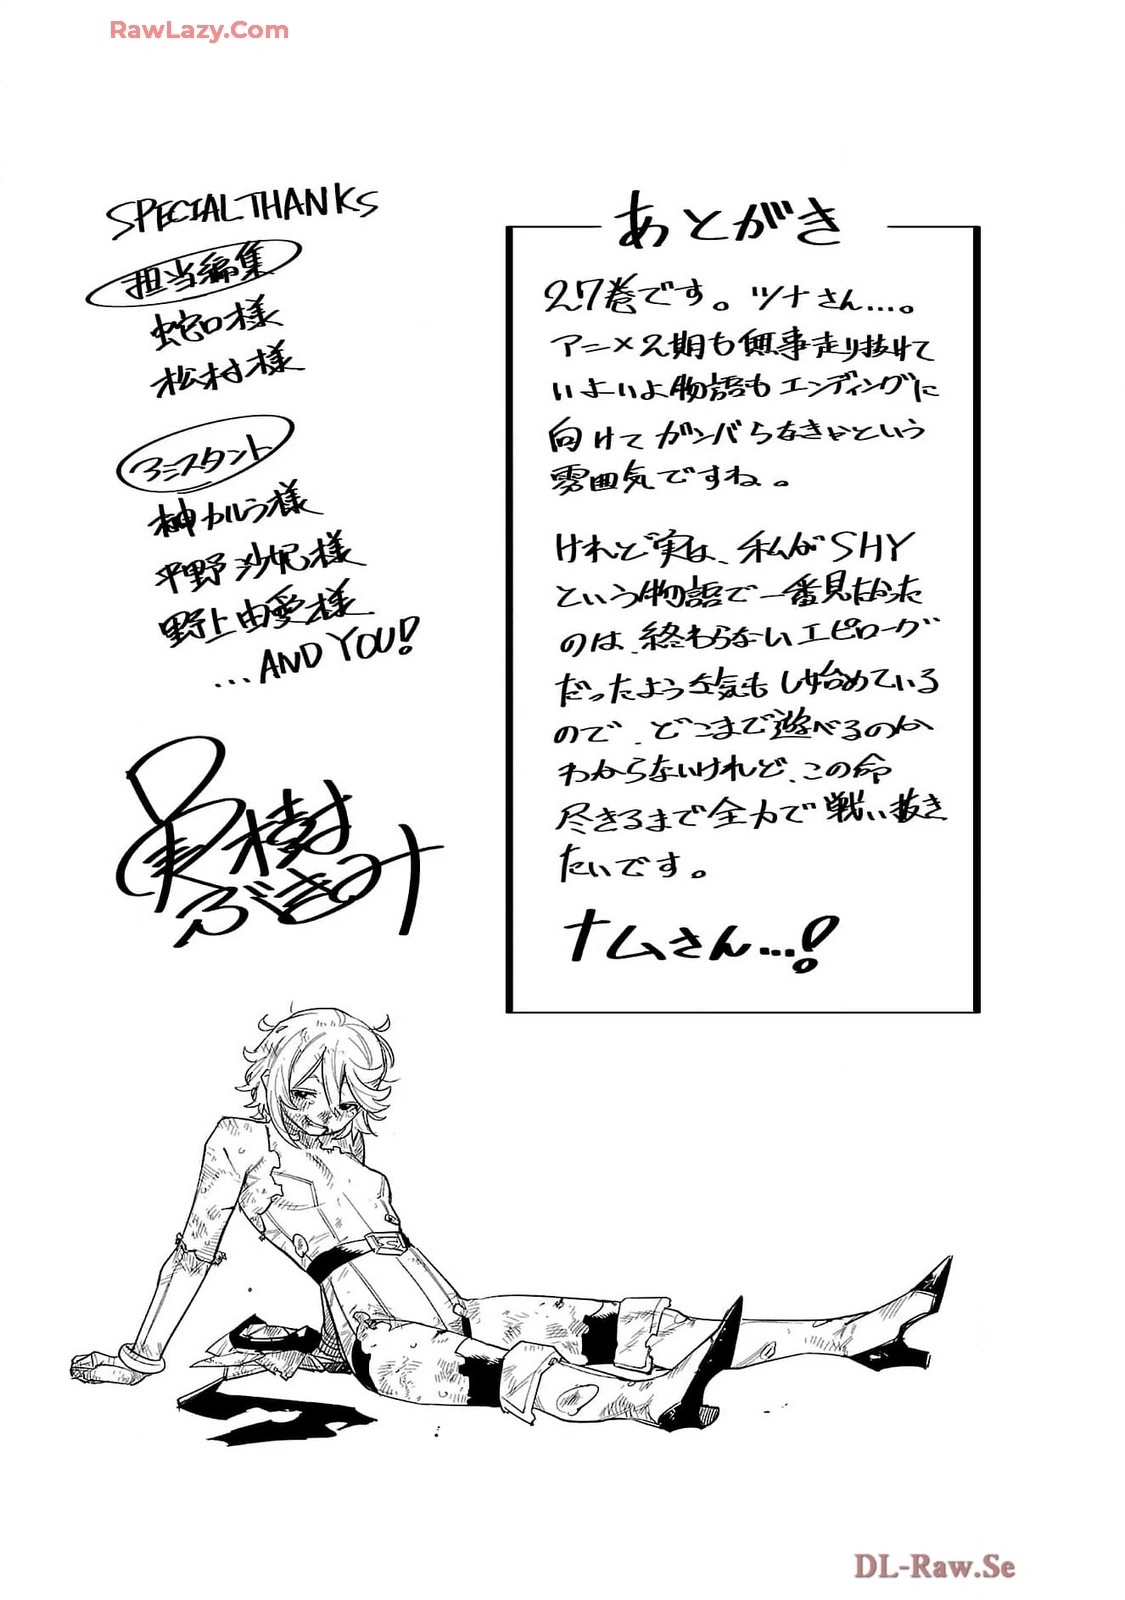 RawLazy.Com
あとがき
27巻です。ツナさん…。
アニメ2期も無事走り抜けて
いよいよ物語もエンディングに
向けてガンバらなきゃという
雰囲気ですね。
けれど実は、私がSHY
という物語で一番見たかった
のは、終わらないエピローグ
だったような気もし始めている
ので、どこまで遊べるのか
わからないけれど、この命
尽きるまで全力で戦い抜き
たいです。
ナムさん…!
SPECIAL THANKS
担当編集
蛇口様
松村様
アシスタント
榊カルラ様
平野沙妃様
野上由愛様
...AND YOU!
実樹
ぶきみ
DL-Raw.Se